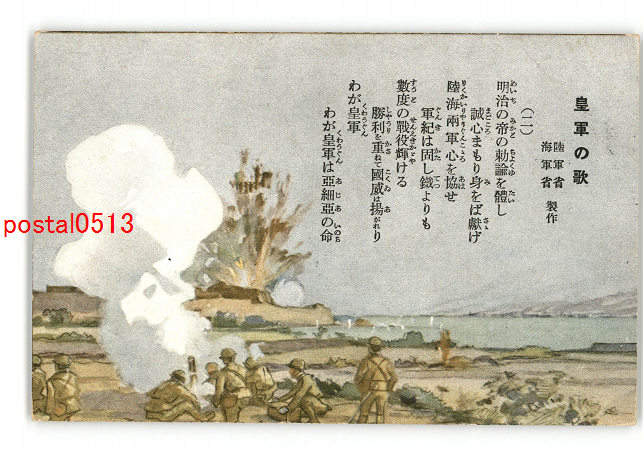 皇軍の歌
陸軍省
海軍省
製作
(二)
明治の帝の勅諭を體し
誠心まもり身をば獻げ
陸海兩軍心を協せ
軍紀は固し鐵よりも
數度の戰役輝ける
勝利を重ねて國威は揚がれり
わが皇軍
わが皇軍は亞細亞の命
postal0513